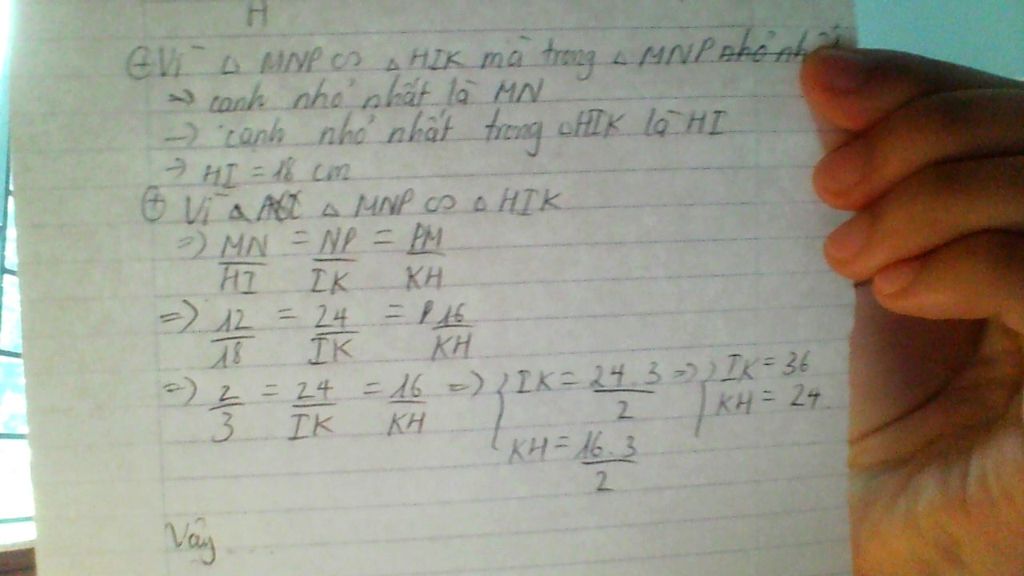 H
⊕ Vì △ MNP ∽ △ HIK mà trong △ MNP nhỏ nhất
=> cạnh nhỏ nhất là MN
-> cạnh nhỏ nhất trong △HIK là HI
-> HI = 18 cm
⊕ Vì △ MNP ∽ △ HIK
=> MN/HI = NP/IK = PM/KH
=> 12/18 = 24/IK = 16/KH
=> 2/3 = 24/IK = 16/KH => { IK = 24.3/2 => { IK = 36
KH = 24
KH = 16.3/2
Vậy ....